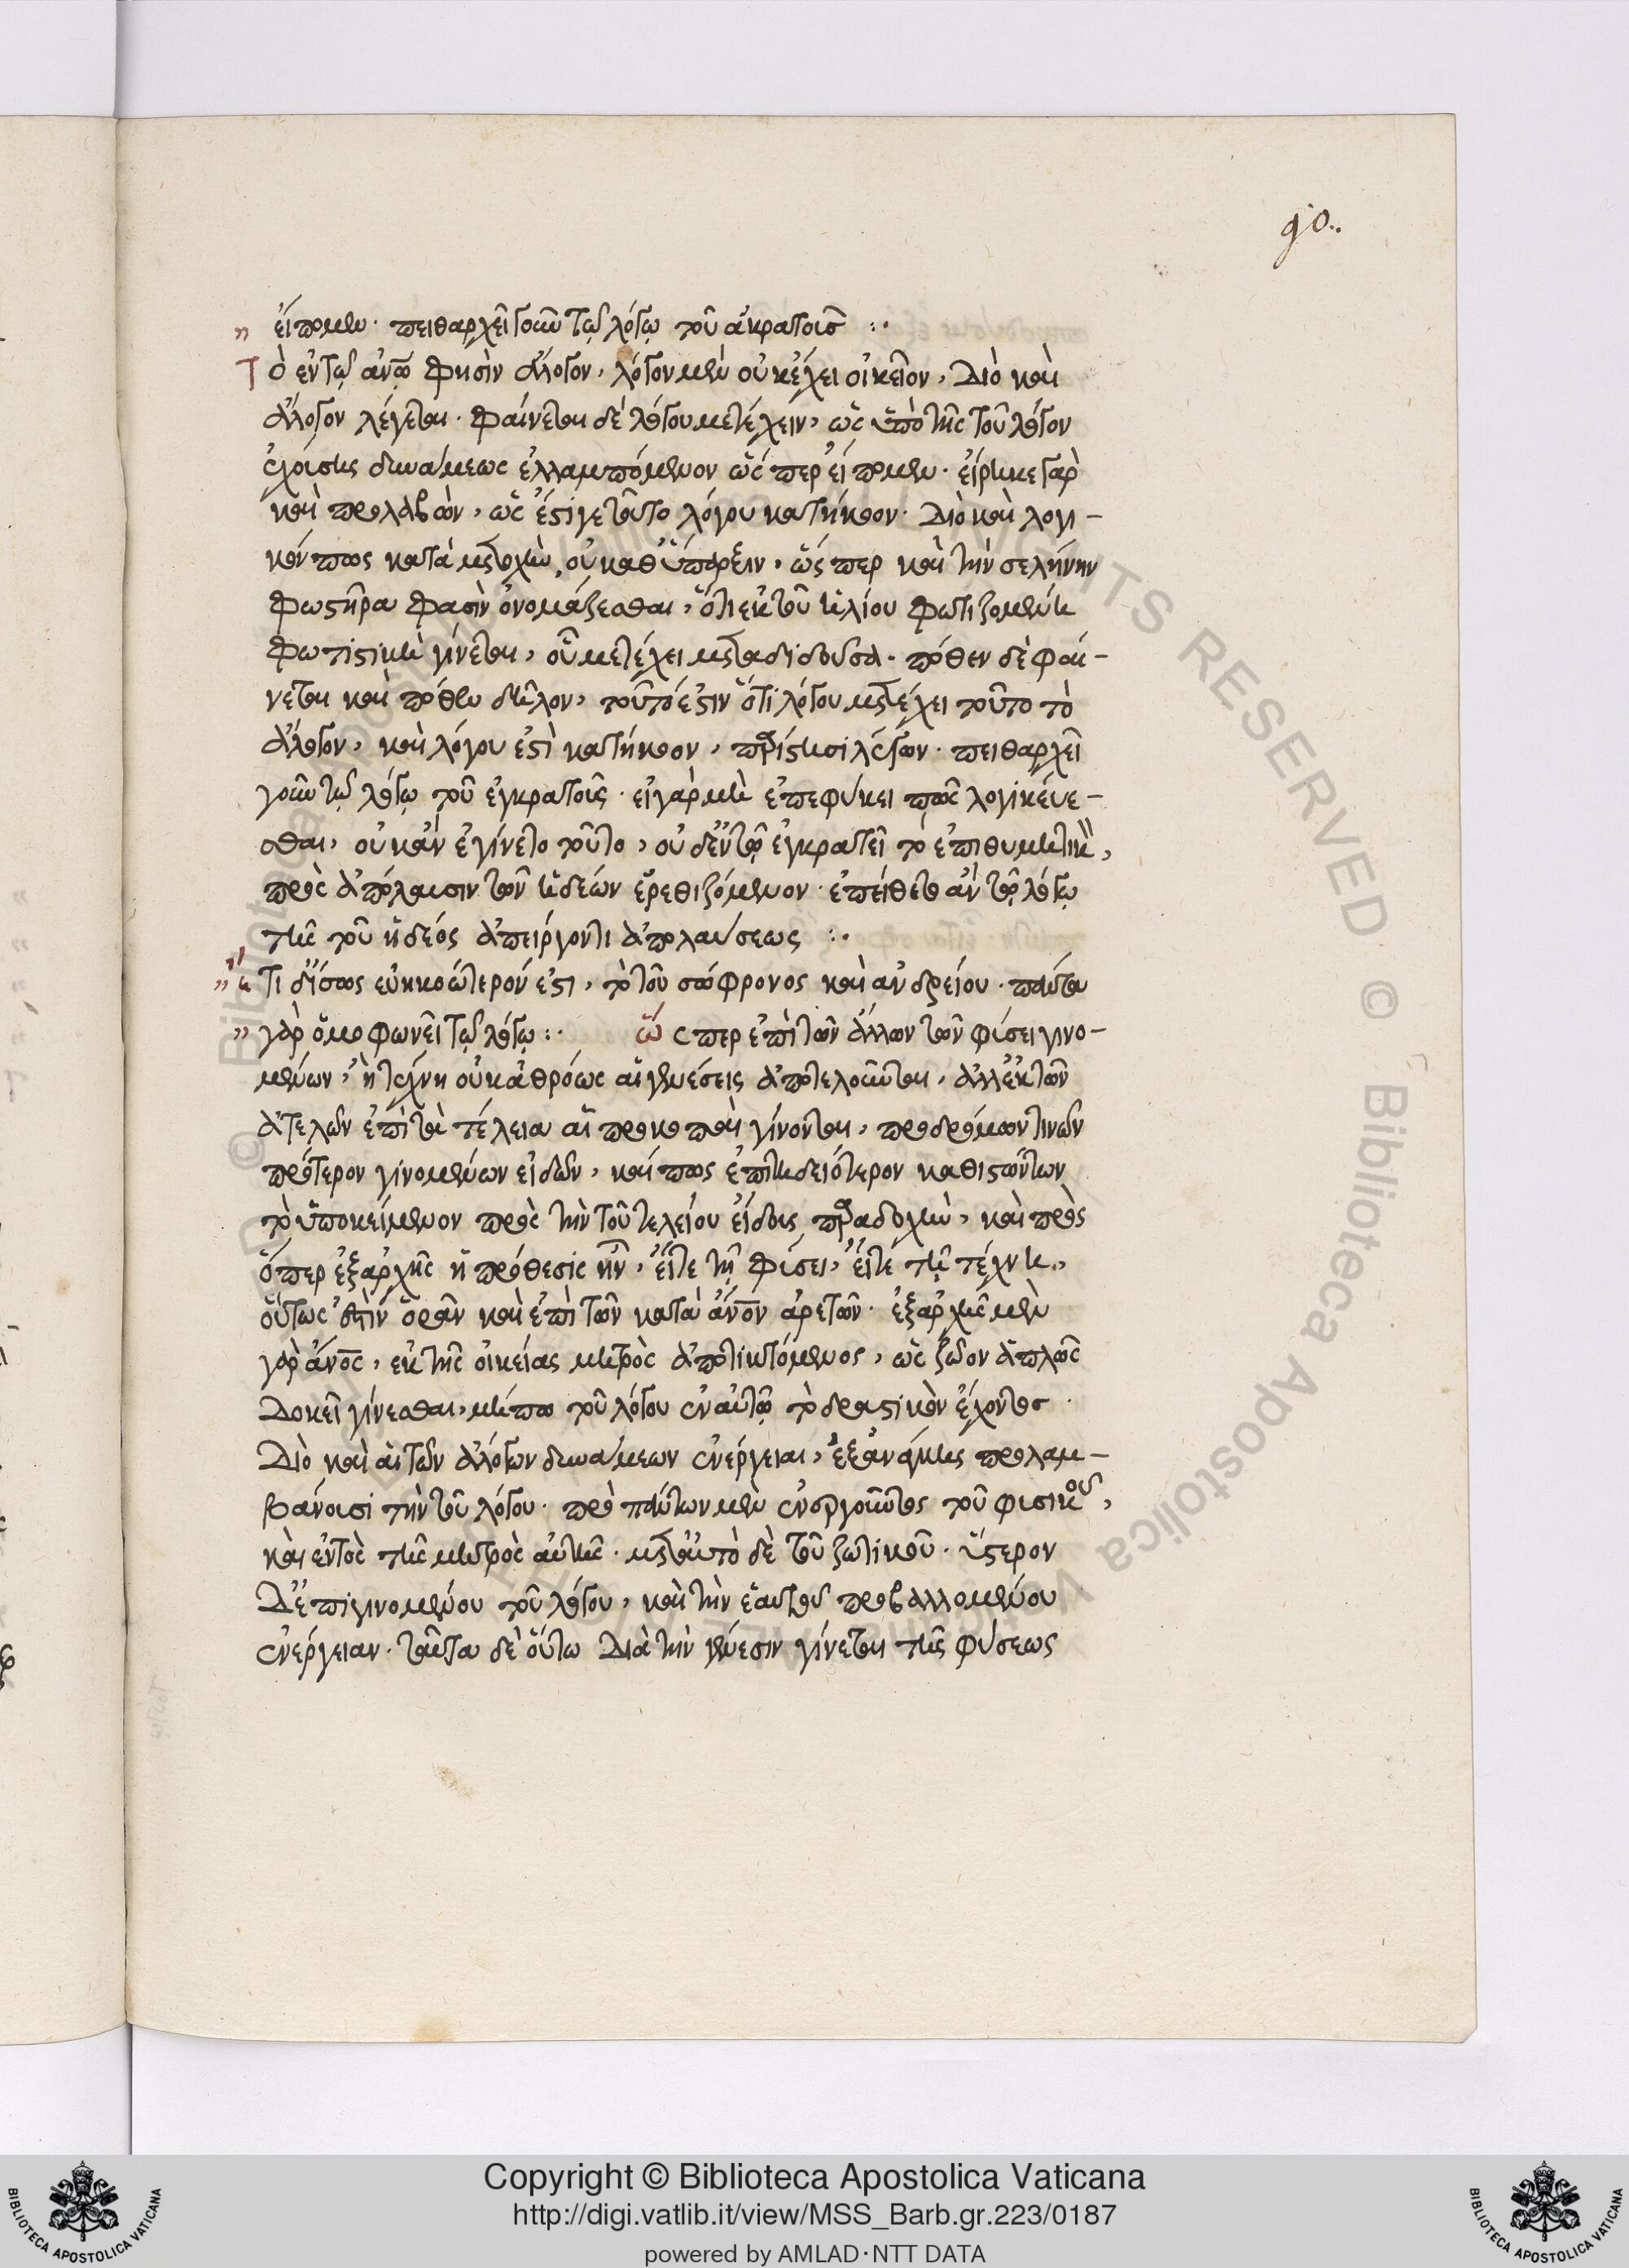 90..
εἴπομεν· πειθαρχεῖ γοῦν τῷ λόγῳ τοῦ ἀκρατοῦς :·
Τὸ ἐν τῷ ἀνῶ φησὶν ἄλογον, λόγον μὲν οὐκ ἔχει οἰκεῖον, Διὸ καὶ
ἄλογον λέγεται. φαίνεται δὲ λόγου μετέχειν, ὡς ὑπὸ τῆς τοῦ λόγον
ἐχούσης δυνάμεως ἐλλαμπόμενον ὥσπερ εἴπομεν. εἴρηκε γὰρ
καὶ προλαβὼν, ὡς ἔστι γε τοῦτο λόγου κατήκοον. Διὸ καὶ λογι-
κόν πως κατὰ μετοχὴν, οὐ καθ' ὕπαρξιν, ὥσπερ καὶ τὴν σελήνην
φωστῆρα φασὶν ὀνομάζεσθαι, ὅτι ἐκ τοῦ ἡλίου φωτιζομένη
φωτιστικὴ γίνεται, οὗ μετέχει μεταδιδοῦσα. πόθεν δὲ φαί-
νεται καὶ πόθεν δῆλον, τοῦτό ἐστιν ὅτι λόγου μετέχει τοῦτο τὸ
ἄλογον, καὶ λόγου ἐστὶ κατήκοον, παρίστησι λέγων. πειθαρχεῖ
γοῦν τῷ λόγῳ τοῦ ἐγκρατοῦς. εἰ γὰρ μὴ ἐπεφύκει πως λογικεύε-
σθαι, οὐκ ἂν ἐγίνετο τοῦτο, οὐδ' ἐν τῷ ἐγκρατεῖ τὸ ἐπιθυμητικ,
πρὸς ἀπόλαυσιν τῶν ἡδέων ἐρεθιζόμενον. ἐπείθετο ἂν τῷ λόγῳ
τῆς τοῦ ἡδέος ἀπείργοντι ἀπολαύσεως :·
Ἔτι δ' ἴσως εὐηκοώτερόν ἐστι, τὸ τοῦ σώφρονος καὶ ἀνδρείου. πάντα
γὰρ ὁμοφωνεῖ τῷ λόγῳ :· ὥσπερ ἐπὶ τῶν ἄλλων τῶν φύσει γινο-
μένων, ἢ τέχνη οὐκ ἀθρόως αἱ γενέσεις ἀποτελοῦνται, ἀλλ' ἐκ τῶν
ἀτελῶν ἐπὶ τὰ τέλεια αἱ προκοπαὶ γίνονται, προδρόμων τινῶν
πρότερον γινομένων εἰδῶν, καί πως ἐπιτηδειότερον καθιστώντων
τὸ ὑποκείμενον πρὸς τὴν τοῦ τελείου εἴδους παραδοχὴν, καὶ πρὸς
ὅπερ ἐξαρχῆς ἡ πρόθεσις ἦν, εἴτε τῇ φύσει, εἴτε τῇ τέχνη.,
οὕτως ἐστὶν ὁρᾶν καὶ ἐπὶ τῶν κατὰ ἄνον ἀρετῶν. ἐξαρχῆς μὲν
γὰρ ἄνος, ἐκ τῆς οἰκείας μητρὸς ἀποτικτόμενος, ὡς ζῷον ἁπλῶς
Δοκεῖ γίνεσθαι, μήπω τοῦ λόγου ἐν αὐτῷ τὸ δραστικὸν ἔχοντος.
Διὸ καὶ αἱ τῶν ἀλόγων δυνάμεων ἐνέργειαι, ἐξ ἀνάγκης προλαμ-
βάνουσι τὴν τοῦ λόγου. πρὸ πάντων μὲν ἐνεργοῦντος τοῦ φυσικοῦ,
καὶ ἐντὸς τῆς μητρὸς αὐτῆς. μετ' αὐτὸ δὲ τοῦ ζωτικοῦ. ὕστερον
Δ' ἐπιγινομένου τοῦ λόγου, καὶ τὴν ἑαυτοῦ προβαλλομένου
ἐνέργειαν. ταῦτα δὲ οὕτω Διὰ τὴν γένεσιν γίνεται τῆς φύσεως
Copyright © Biblioteca Apostolica Vaticana
http://digi.vatlib.it/view/MSS_Barb.gr.223/0187
powered by AMLAD·NTT DATA